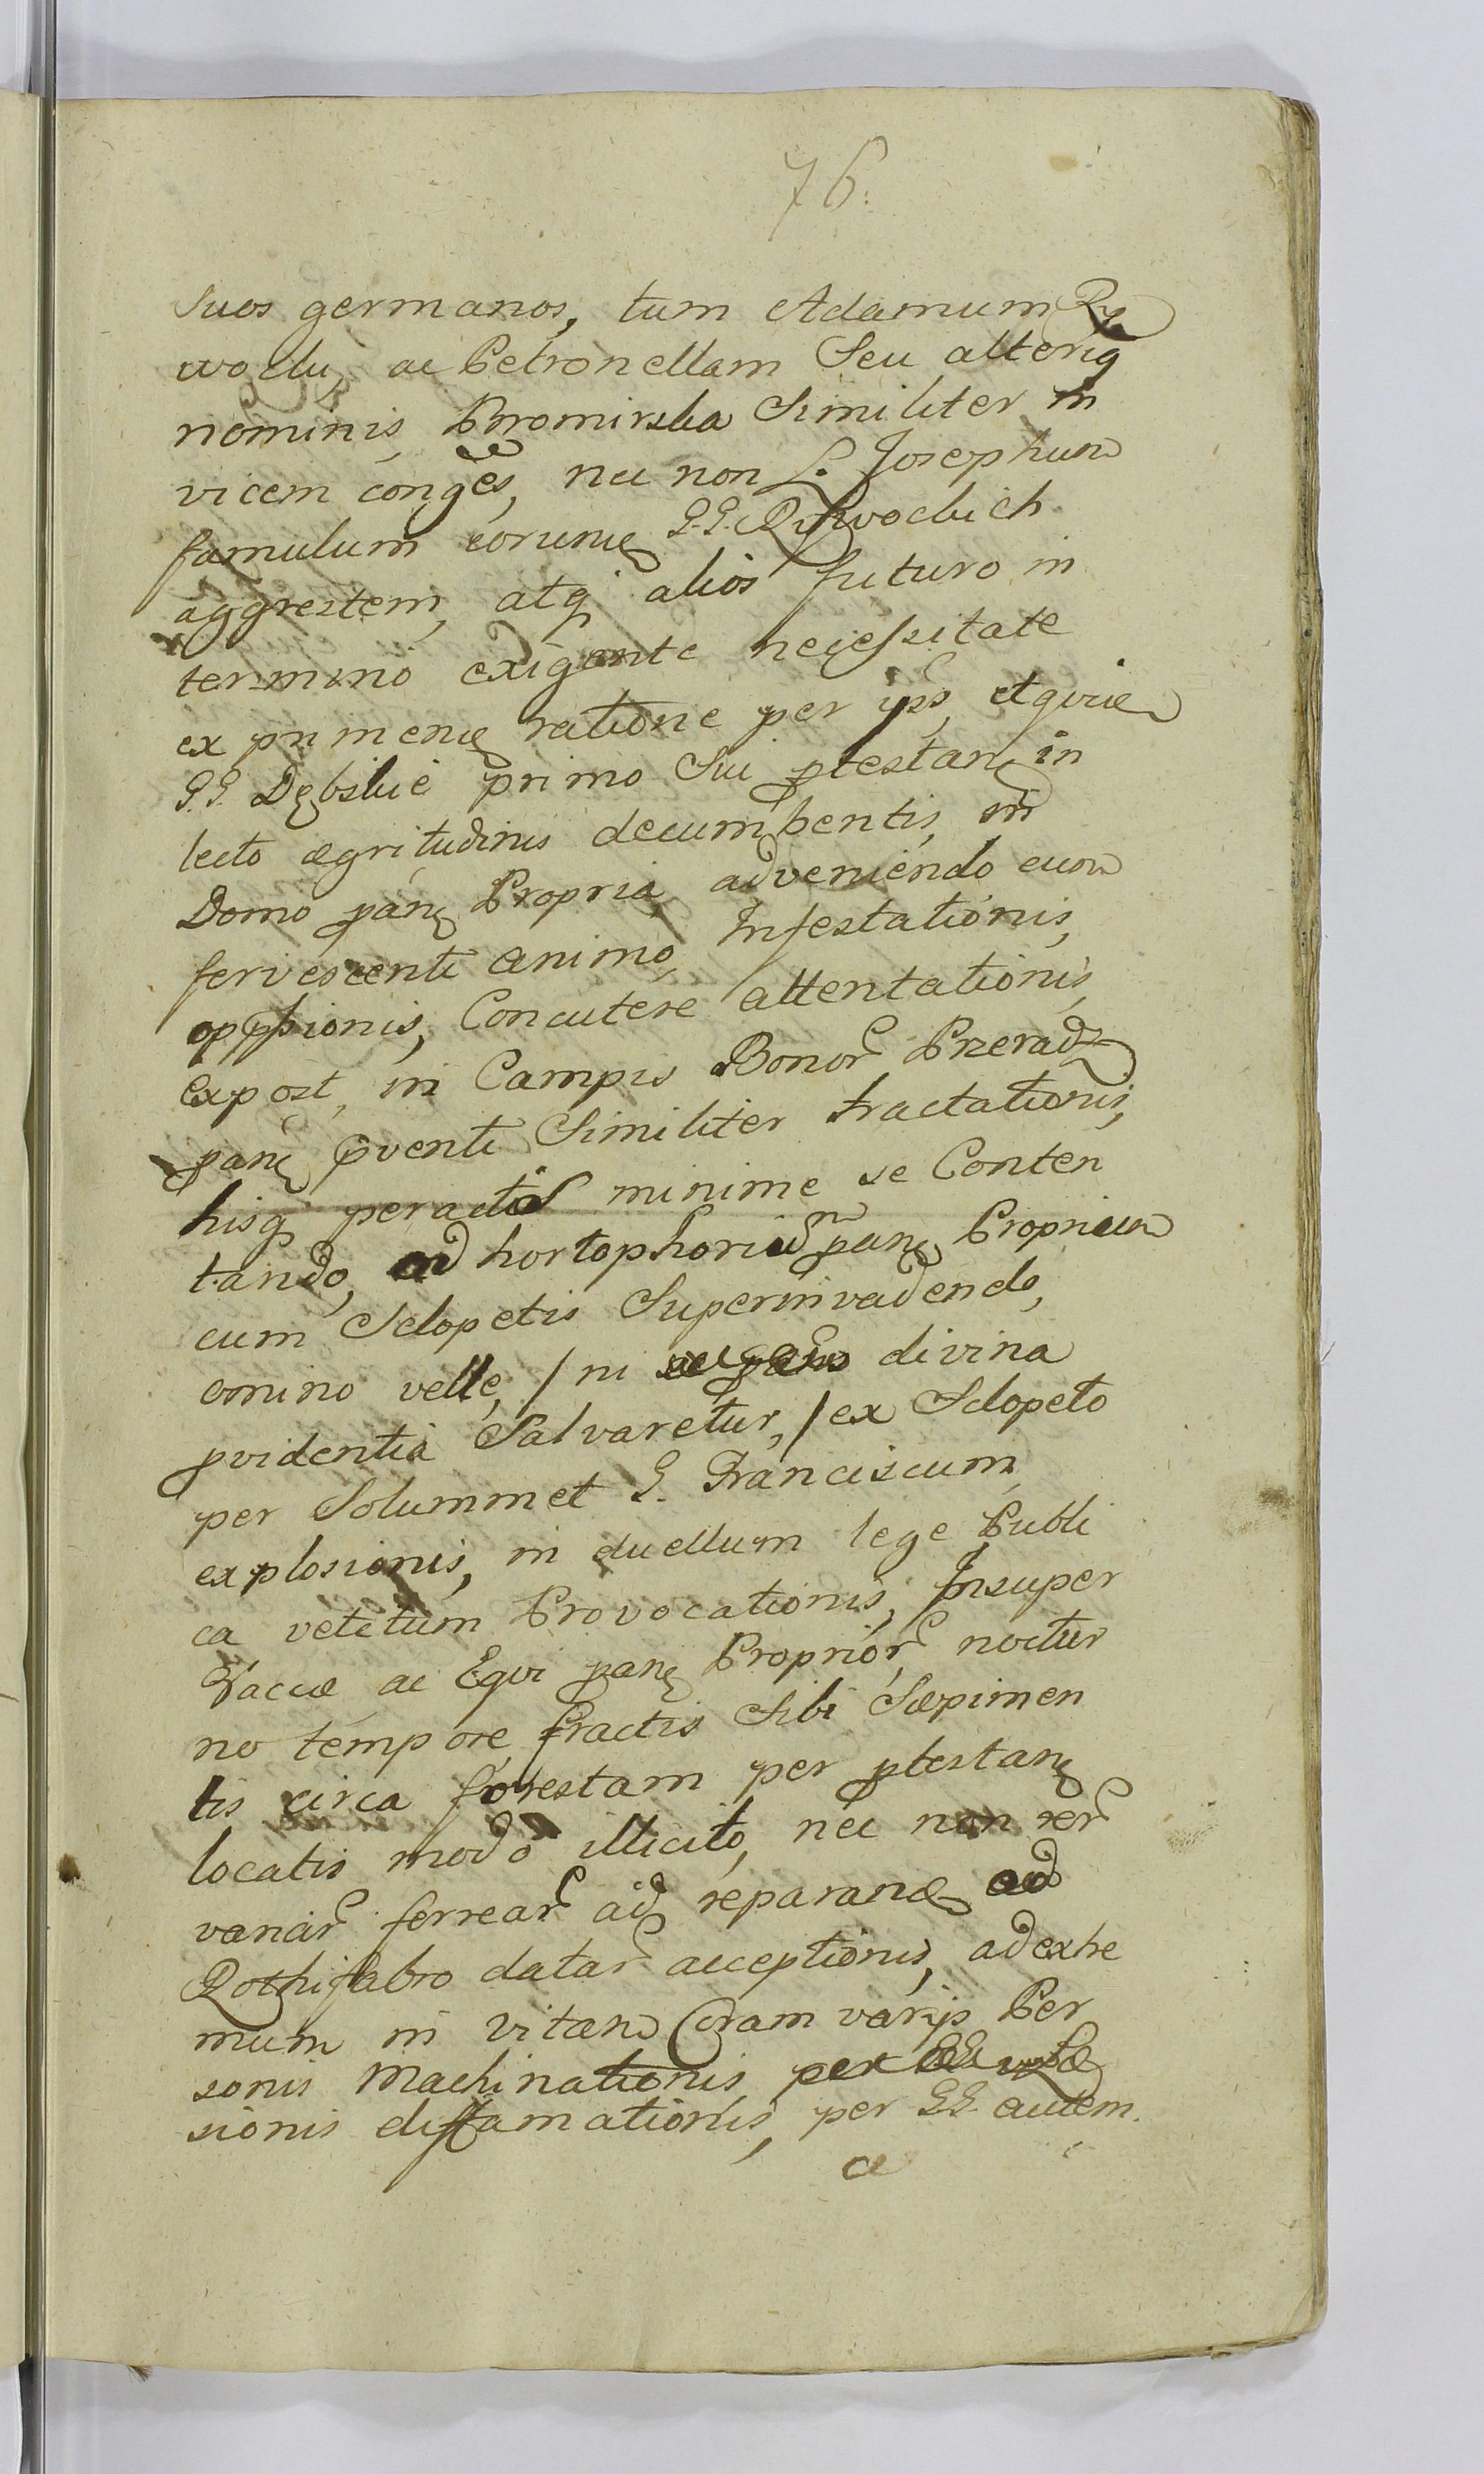 76.
Suos germanos, tum Adamum Ry
wocki, ac Petronellam Seu alteriq
nominis, Bromirska Similiter in
vicem congēs, nec non L. Josephum
famulum eorund G.G. Rywockich
aggrestem, atq alios futuro in
termino exigente necessitate
exprimend ratione per ips, et quide
G.G. Dębskie primo Sui ptestan in
lecto ægritudinis decumbentis, in
Domo pan Propria, adveniendo eum
fervescenti animo, Infestationis,
oppssionis, Concutere attentationis,
Expost, in Campis Bonor Przeradz
pan pventi Similiter tractationis,
hisq peractis minime se Conten
tando, ad hortophoriu pan Proprium
cum Sclopetis Superinvadendo,
omino velle, / ni divina
pvidentia Salvaretur, / ex Sclopeto
per Solummet G. Franciscum,
explosionis, in duellum lege Publi
ca vetitum Provocationis, Insuper
Vaccæ ac Equi pan Proprior noctur
no tempore, fractis Sibi Sæpimen
tis circa forestam per ptestan
locatis modo illicito, nec non rer
variar ferrear ad reparand ad
Rothifabro datar acceptionis, ad extre
mum in vitam Coram varijs Per
sonis Machinationis,
sionis diffamationis, per GG. autem.
a